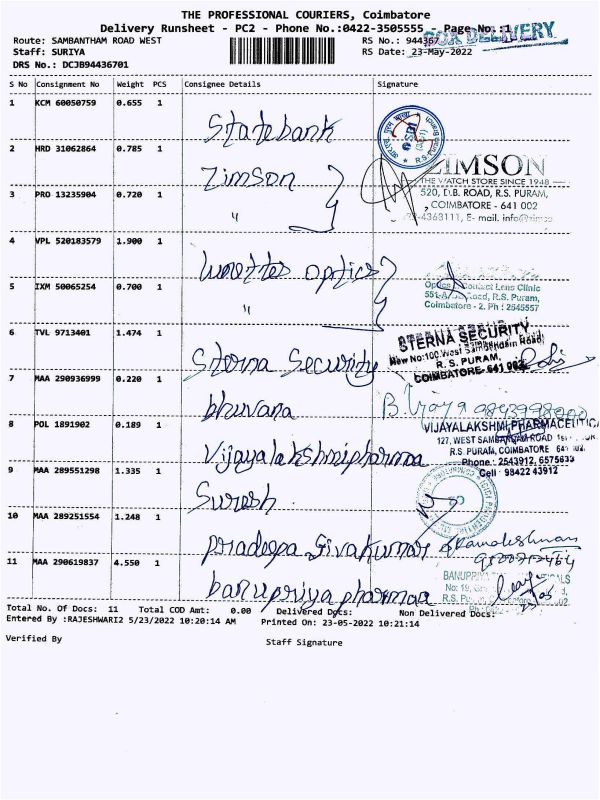 THE PROFESSIONAL COURIERS, Coimbatore
Delivery Runsheet - PC2 - Phone No.:0422-3505555 - Page No. 1
DELIVERY
Route: SAMBANTHAM ROAD WEST
RS No.: 944367
Staff: SURIYA
RS Date: 23-May-2022
DRS No.: DCJB94436701
S No Consignment No Weight PCS Consignee Details Signature
1 KCM 60050759 0.655 1 Statebank
SBI
2 HRD 31062864 0.785 1 Zimson
ZIMSON
THE WATCH STORE SINCE 1948
3 PRO 13235904 0.720 1 "
520, D.B. ROAD, R.S. PURAM,
COIMBATORE - 641 002
4363111, E- mail.
4 VPL 520183579 1.900 1 optics
5 IXM 50065254 0.700 1 "
Optics Contact Lens Clinic
Road, R.S. Puram,
Coimbatore - 2. Ph : 2545557
6 TVL 9713401 1.474 1 Sterna Security
STERNA SECURITY
New No:100, West Sambandam Road
R. S. PURAM,
COIMBATORE- 641 002.
7 MAA 290936999 0.220 1 bhuvana
8 POL 1891902 0.189 1 Vijayalakshmipharmaa
VIJAYALAKSHMI PHARMACEUTICA
127, WEST SAMBANDAM ROAD
R.S. PURAM, COIMBATORE 641 002.
Phone : 2543912, 6575633
Cell : 98422 43912
9 MAA 289551298 1.335 1 Suresh
10 MAA 289251554 1.248 1 pradeepa Sivakumar
11 MAA 290619837 4.550 1 banupriya pharmaa
BANUPRIYA
No: 19,
R.S.
Total No. Of Docs: 11 Total COD Amt: 0.00 Delivered Dcts: Non Delivered Docs:
Entered By :RAJESHWARI2 5/23/2022 10:20:14 AM Printed On: 23-05-2022 10:21:14
Verified By Staff Signature